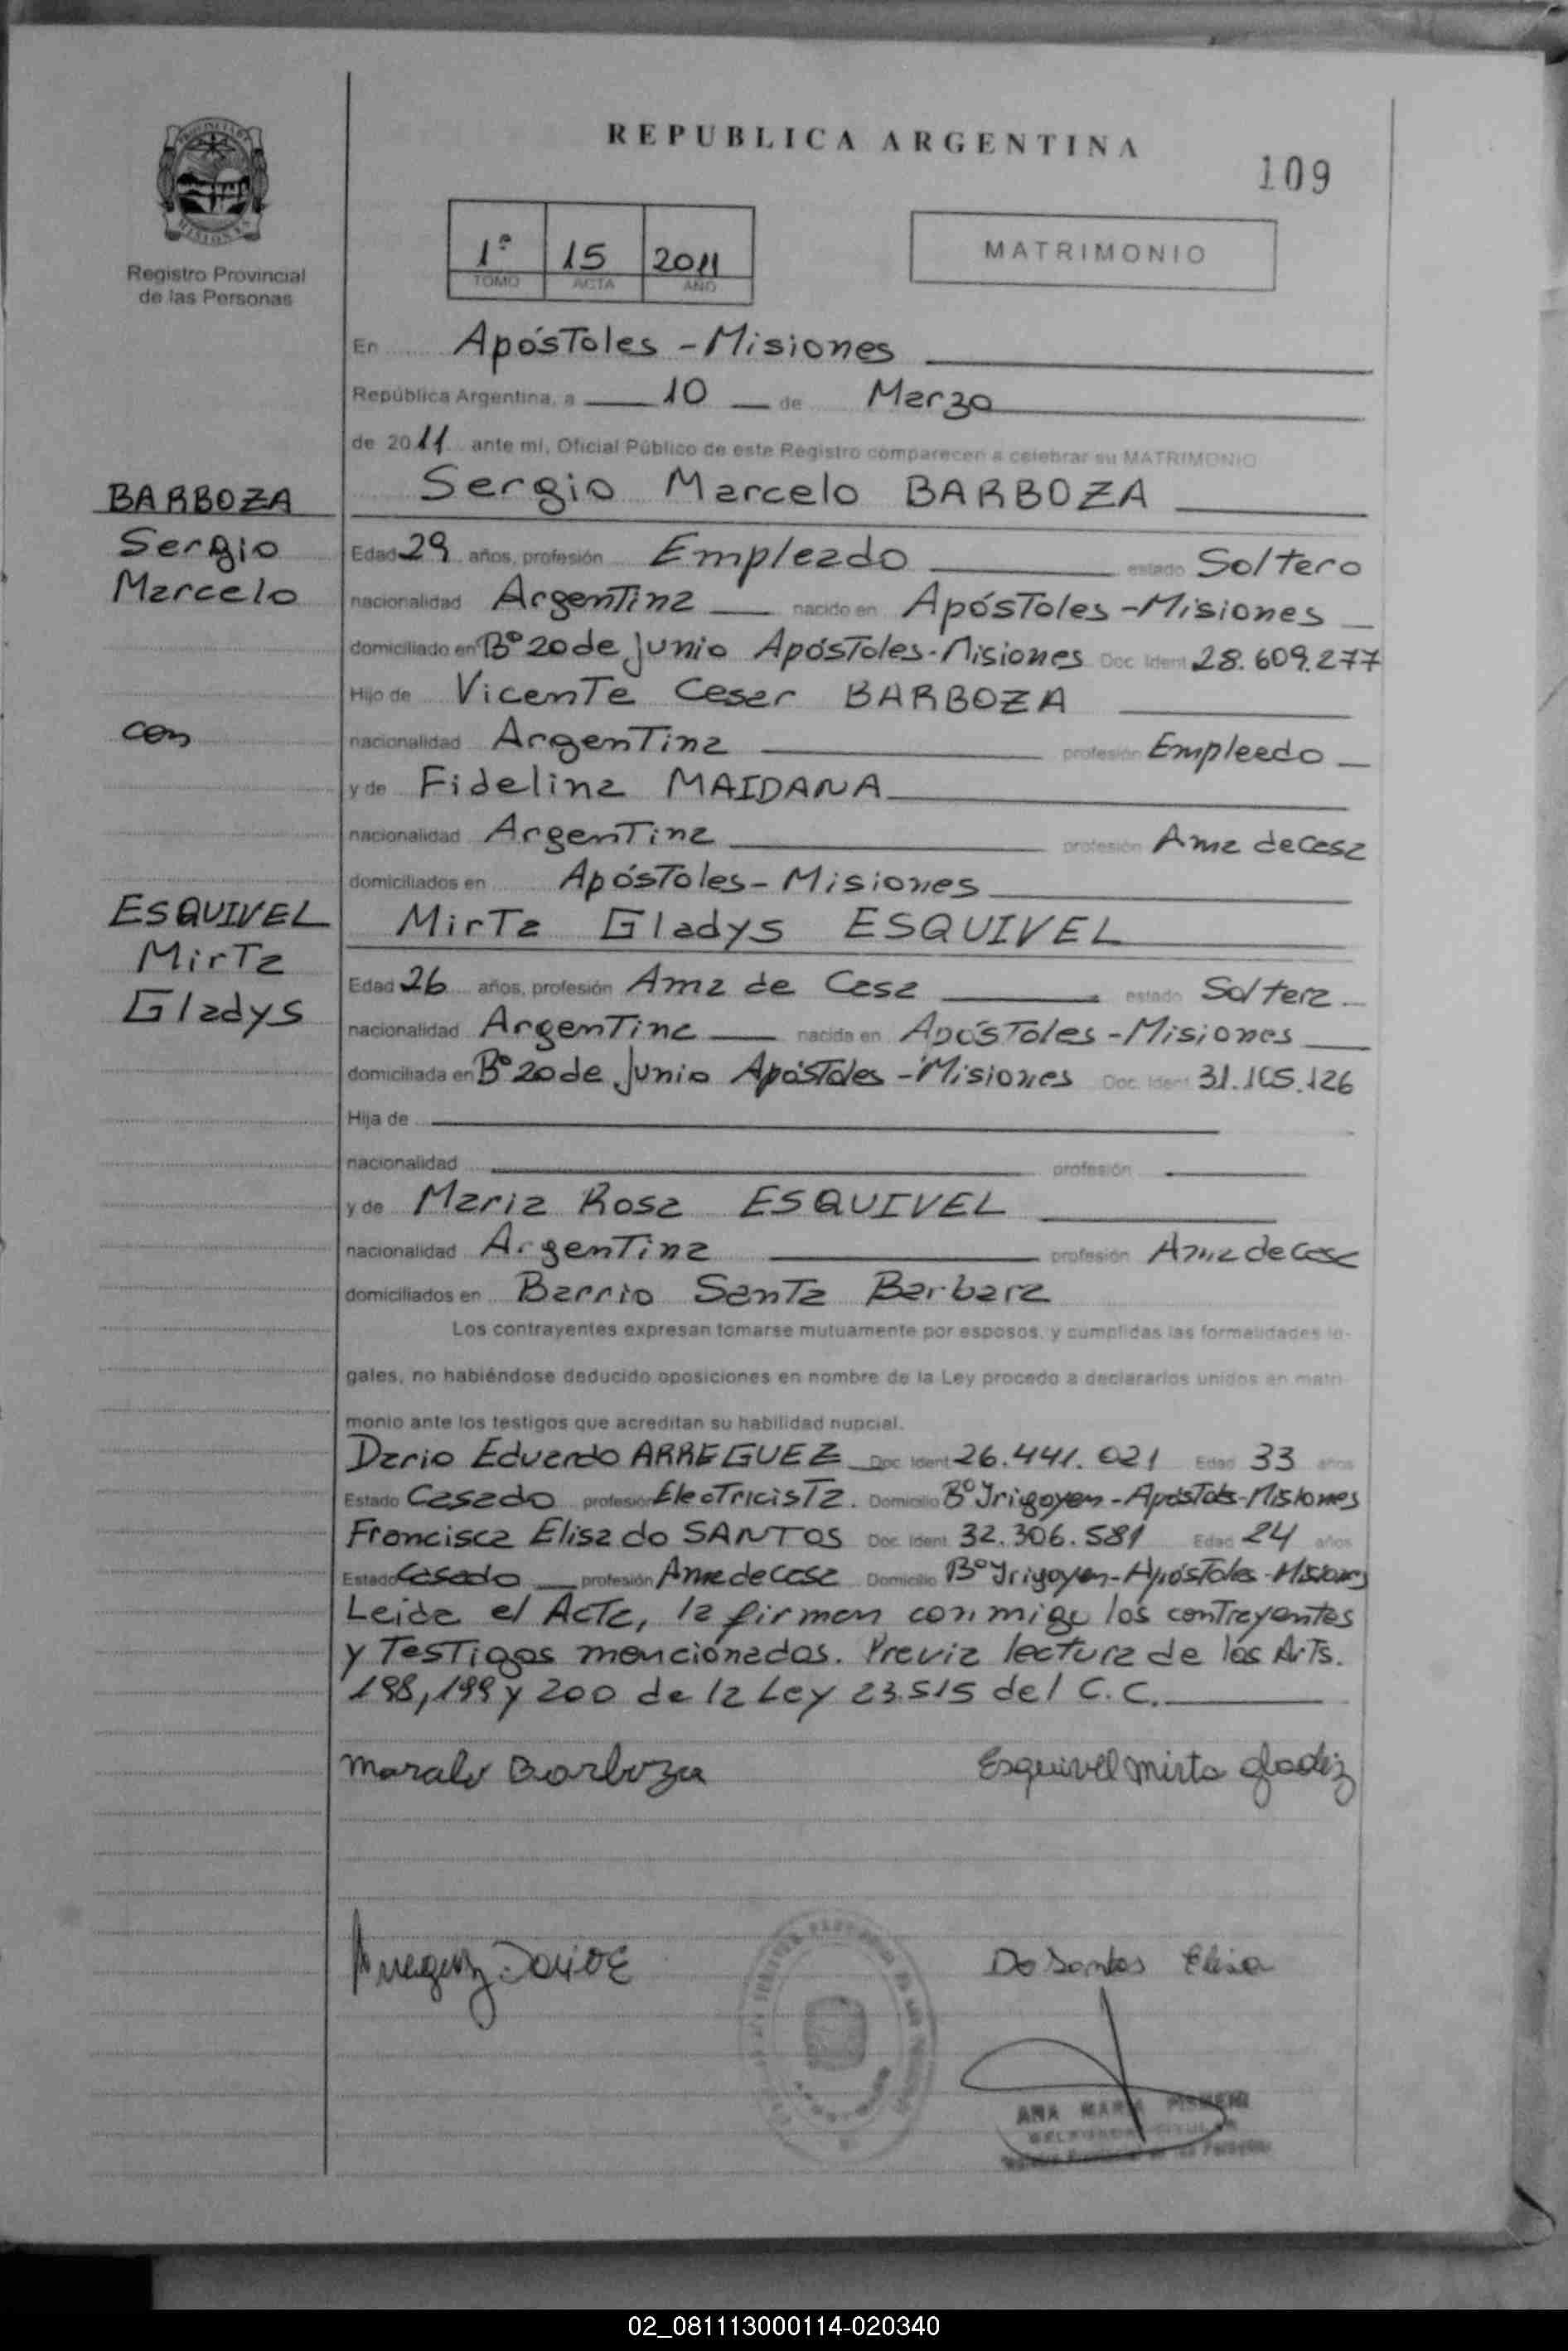 REPUBLICA ARGENTINA
109
Registro Provincial
de las Personas
1º 15 2011
TOMO ACTA AÑO
MATRIMONIO
En Apóstoles - Misiones
República Argentina, a 10 de Marzo
de 2011 ante mi, Oficial Público de este Registro comparecen a celebrar su MATRIMONIO
Sergio Marcelo BARBOZA
BARBOZA
Sergio
Marcelo
con
ESQUIVEL
Mirta
Gladys
Edad 29 años, profesión Empleado estado Soltero
nacionalidad Argentina nacido en Apóstoles - Misiones
domiciliado en Bº 20 de junio Apóstoles - Misiones Doc. Ident. 28.609.277
Hijo de Vicente Cesar BARBOZA
nacionalidad Argentina profesión Empleado
y de Fidelina MAIDANA
nacionalidad Argentina profesión Ama de casa
domiciliados en Apóstoles - Misiones
Mirta Gladys ESQUIVEL
Edad 26 años, profesión Ama de Casa estado Soltera
nacionalidad Argentina nacida en Apóstoles - Misiones
domiciliada en Bº 20 de Junio Apóstoles - Misiones Doc. Ident. 31.105.126
Hija de
nacionalidad profesión
y de Maria Rosa ESQUIVEL
nacionalidad Argentina profesión Ama de casa
domiciliados en Barrio Santa Barbara
Los contrayentes expresan tomarse mutuamente por esposos, y cumplidas las formalidades le-
gales, no habiéndose deducido oposiciones en nombre de la Ley procedo a declararlos unidos en matri-
monio ante los testigos que acreditan su habilidad nupcial.
Dario Eduardo ARREGUEZ Doc. Ident. 26.441.021 Edad 33 años
Estado Casado profesión Electricista. Domicilio Bº Yrigoyen - Apóstoles - Misiones
Francisca Elisa do SANTOS Doc. Ident. 32.306.581 Edad 24 años
Estado Casado profesión Ama de casa Domicilio Bº Yrigoyen - Apóstoles - Misiones
Leida el Acta, la firman conmigo los contrayentes
y Testigos mencionados. Previa lectura de los Arts.
198, 199 y 200 de la Ley 23.515 del C.C.
Marcelo Barboza Esquivel mirta gladiz
Do Santos Elisa
ANA MARIA
02_081113000114-020340